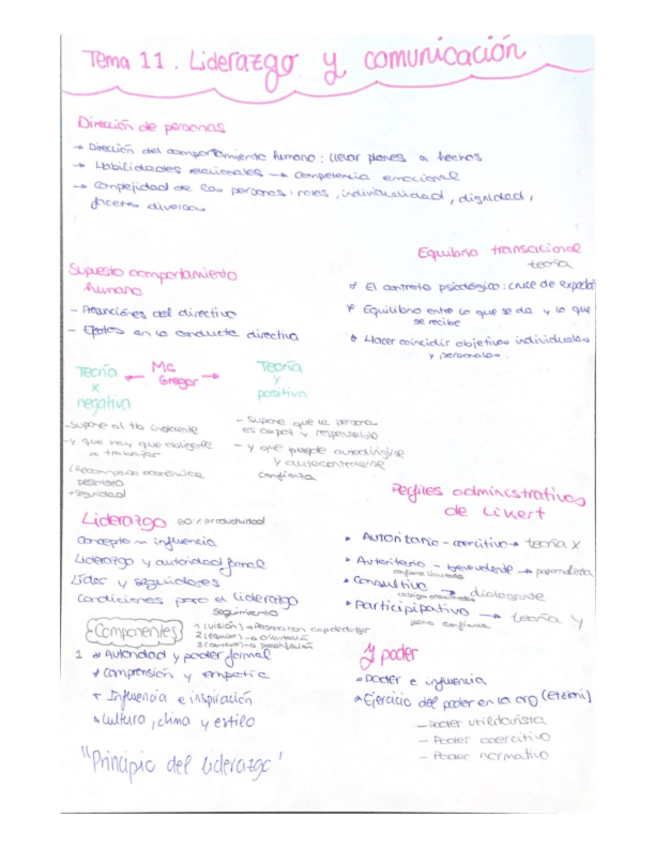 Tema 11. Liderazgo y comunicación
Dirección de personas
→ Dirección del comportamiento humano: llevar planes a hechos
→ Habilidades relacionales → competencia emocional
→ Compejidad de las personas: roles, individualidad, dignidad,
facetas diversas
Supuesto comportamiento
humano
- Asunciones del directivo
- Efectos en la conducta directiva
Equilibrio transacional
teoría
El contrato psicológico: cruce de expectat
Equilibrio entre lo que se da y lo que
se recibe
Hacer coincidir objetivos individuales
y personales.
Teoría
X
negativa
← Mc Gregor →
Teoría
Y
positiva
- Supone al tb indolente
- y que hay que obligarle
a trabajar
(Recompensa económica
+ seguridad
- Supone que la persona
es capaz y responsable
- y que puede autodirigirse
y autocontrolarse
confianza
Liderazgo 60% productividad
Concepto ~ influencia
Liderazgo y autoridad formal
Líder y seguidores
Condiciones para el liderazgo
seguimiento
Componentes
1 (visión) → Persona con capacidad
2 (equipo) → orientación
3
1 Autoridad y poder formal
Comprensión y empatía
Influencia e inspiración
Cultura, clima y estilo
"Principio del liderazgo"
Perfiles administrativos
de Likert
Autoritario - coercitivo → teoría X
Autoritario - benevolente → paternalista
confianza limitada
Consultivo → dialogante
Participipativo → teoría Y
plena confianza
y poder
Poder e influencia
Ejercicio del poder en la org (Etzioni)
- Poder utilitarista
- Poder coercitivo
- Poder normativo